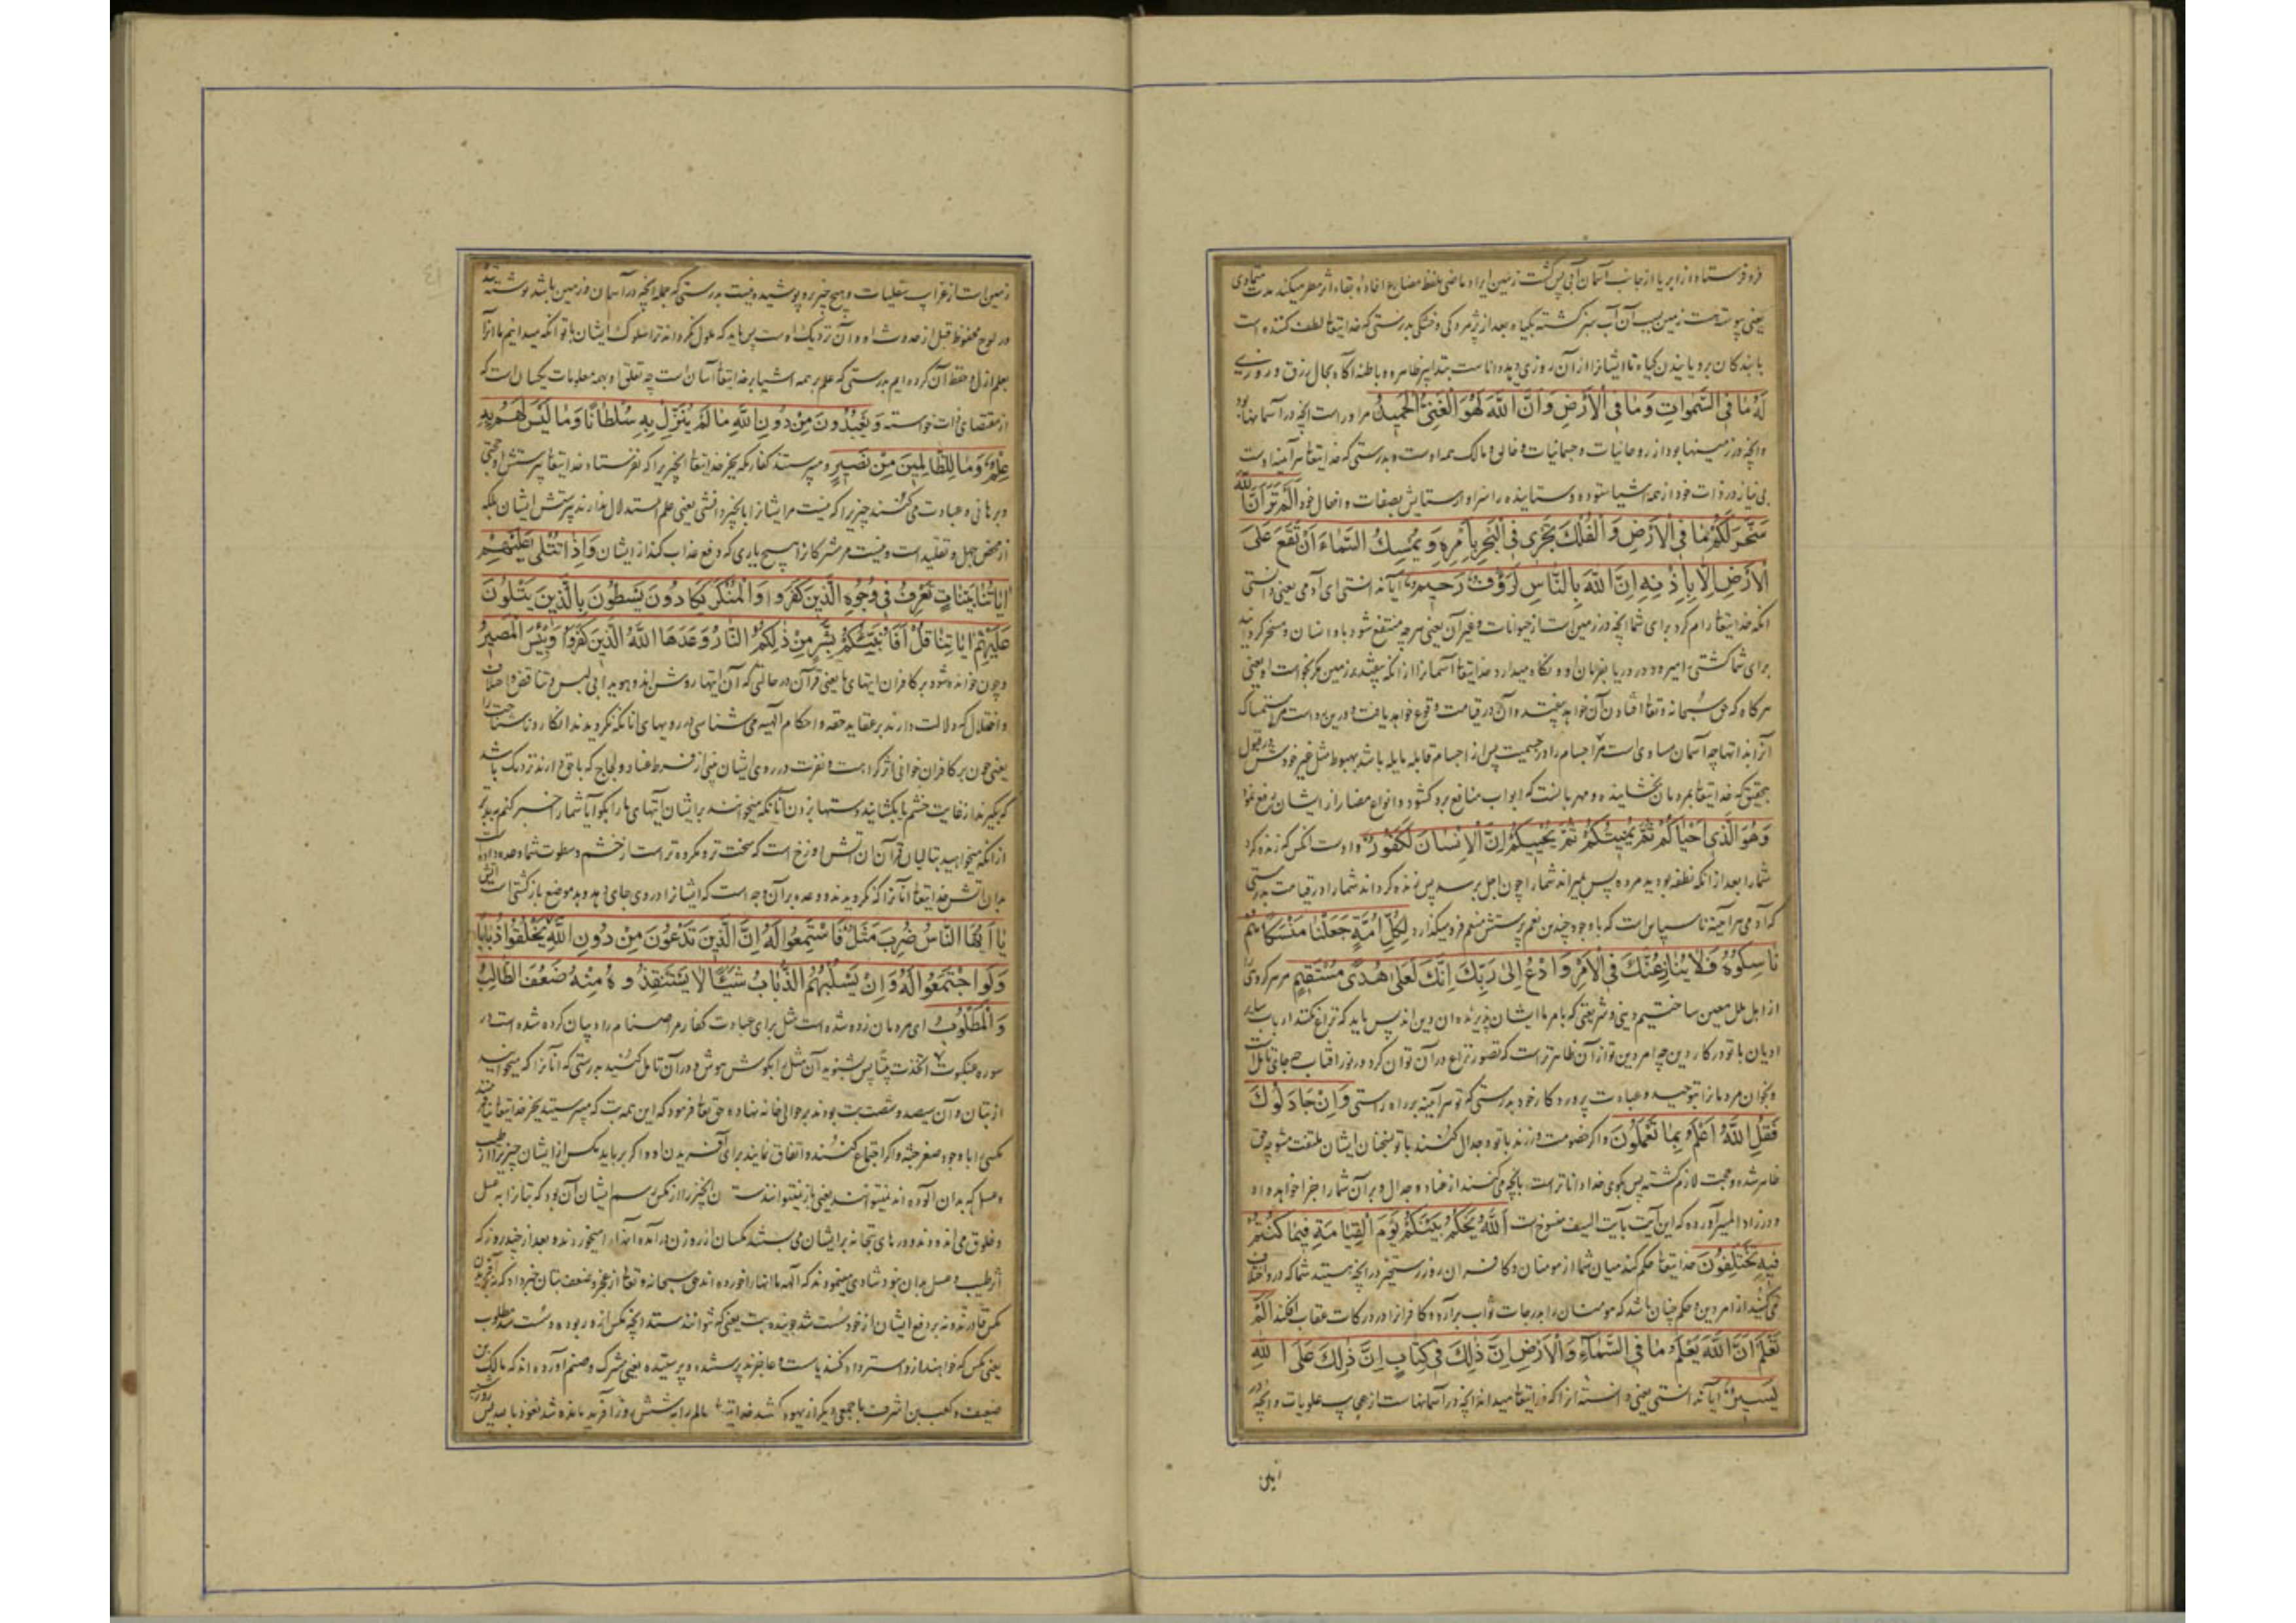 فرو فرستاد از ابر یا از جانب آسمان آبی پس گشت زمین ایراد ماضی بلفظ مضارع افاده بقاء اثر مطر میکند مدت متمادی
یعنی پیوسته زمین بسبب آن آب سبز گشته بگیاه بعد از پژمردگی و خشکی بدرستی که خدایتعا لطف کننده است
یا بندکان برویانیدن گیاه تا ایشانرا از آن روزی دهد داناست بتدابیر ظاهره و باطنه آگاه بحال رزق و روزی
لَهُ مٰا فِی السَّمٰوٰاتِ وَمٰا فِی الْاَرْضِ وَاِنَّ اللّٰهَ لَهُوَ الْغَنِیُّ الْحَمِیدُ مراوراست انچه در آسمانها بود
وانچه در زمینها بود از روحانیات و جسمانیات و خالق و مالک همه اوست و بدرستی که خدایتعا هرآینه اوست
بی نیاز در ذات خود از همه اشیا ستوده و ستاینده را سزاوار ستایش بصفات و افعال خود اَلَمْ تَرَ اَنَّ اللّٰهَ
سَخَّرَ لَکُمْ مٰا فِی الْاَرْضِ وَالْفُلْکَ تَجْرِی فِی الْبَحْرِ بِاَمْرِهِ وَیُمْسِکُ السَّمٰاءَ اَنْ تَقَعَ عَلَی
الْاَرْضِ اِلّٰا بِاِذْنِهِ اِنَّ اللّٰهَ بِالنّٰاسِ لَرَؤُفٌ رَحِیمٌ آیا ندانستی ای آدمی یعنی دانستی
انکه خدایتعا رام کرد برای شما انچه در زمین است از حیوانات و غیر آن یعنی هرچه منتفع شود باو انسان و مسخر گردانید
برای شما کشتی را میرود در دریا بفرمان او و نگاه میدارد خدایتعا آسمانرا از انکه بیفتد بر زمین مگر بخواست او یعنی
هرگاه که حق سبحانه و تعا افتادن آن خواهد بیفتد و آن در قیامت وقوع خواهد یافت و درین رد است مر استمساک
آنرا بذاتها چه آسمان مساوی است مر اجسام را در جسمیت پس از اجسام قابله مایله باشد بهبوط مثل غیر خودش در قبول
بتحقیق که خدایتعا بمردمان بخشاینده و مهربانست که ابواب منافع برو گشود و انواع مضار را از ایشان دفع نمود
وَهُوَ الَّذِی اَحْیٰاکُمْ ثُمَّ یُمِیتُکُمْ ثُمَّ یُحْیِیکُمْ اِنَّ الْاِنْسٰانَ لَکَفُورٌ و اوست انکس که زنده کرد
شما را بعد از انکه نطفه بودید مرده پس بمیراند شما را چون اجل برسد پس زنده گرداند شما را در قیامت بدرستی
که آدمی هرآینه ناسپاس است که باوجود چندین نعم پرستش منعم فرو میگذارد لِکُلِّ اُمَّةٍ جَعَلْنٰا مَنْسَکًا هُمْ
نٰاسِکُوهُ فَلٰا یُنٰازِعُنَّکَ فِی الْاَمْرِ وَادْعُ اِلٰی رَبِّکَ اِنَّکَ لَعَلٰی هُدًی مُسْتَقِیمٍ مر هر گروی را
از اهل ملل معین ساختیم دینی و شریعتی که بامر ما ایشان پذیرنده ان دین اند پس باید که نزاع نکنند ارباب سایر
ادیان با تو در کار دین چه امر دین تو از آن ظاهرتر است که تصور نزاع در آن توان کرد در نور آفتاب چه جای تأمل است
و بخوان مردمانرا بتوحید و عبادت پروردکار خود بدرستی که تو هرآینه بر راه راستی وَاِنْ جٰادَلُوکَ
فَقُلِ اللّٰهُ اَعْلَمُ بِمٰا تَعْمَلُونَ و اگر خصومت ورزند با تو و جدال کنند با تو بسخنان ایشان ملتفت مشو چه حق
ظاهر شده و حجت لازم گشته پس بگوی خدا داناتر است بانچه می کنند از عناد و جدال و بر آن شما را جزا خواهد داد
و در زاد المسیر آورده که این آیت بآیت السیف منسوخ است اَللّٰهُ یَحْکُمُ بَیْنَکُمْ یَوْمَ الْقِیٰامَةِ فِیمٰا کُنْتُمْ
فِیهِ تَخْتَلِفُونَ خدایتعا حکم کند میان شما از مومنان و کافران روز رستخیز در انچه هستید شما که درو اختلاف
می کنید از امر دین و حکم چنان باشد که مومنان را بدرجات ثواب برآرد و کافرانرا در درکات عقاب افکند اَلَمْ
تَعْلَمْ اَنَّ اللّٰهَ یَعْلَمُ مٰا فِی السَّمٰاءِ وَالْاَرْضِ اِنَّ ذٰلِکَ فِی کِتٰابٍ اِنَّ ذٰلِکَ عَلَی اللّٰهِ
یَسِیرٌ آیا ندانستی یعنی دانسته انرا که خدایتعا میداند انچه در آسمانهاست از عجایب علویات و انچه در
زمین است از غرایب سفلیات و هیچ چیز برو پوشیده نیست بدرستی که جمله انچه در آسمان و زمین باشد نوشته شد
در لوح محفوظ قبل از حدوث او و آن نزدیک اوست پس باید که ملول نگرداند ترا سلوک ایشان با تو انکه میدانیم ما انرا
بعلم ازلی و حفظ آن کرده ایم بدرستی که علم بر همه اشیا بر خدایتعا آسان است چه تعلق او بهمه معلومات یکسان است که
از مقتضای ذات خواسته وَیَعْبُدُونَ مِنْ دُونِ اللّٰهِ مٰا لَمْ یُنَزِّلْ بِهِ سُلْطٰانًا وَمٰا لَیْسَ لَهُمْ بِهِ
عِلْمٌ وَمٰا لِلظّٰالِمِینَ مِنْ نَصِیرٍ و میپرستند کفار مکه بجز خدایتعا انچیزیرا که نفرستاد خدایتعا بپرستش او حجتی
و برهانی و عبادت می کنند چیزیرا که نیست مرایشانرا بانچیز دانشی یعنی علم استدلال ندارند بپرستش ایشان بلکه
از محض جهل و تقلید است و نیست مر مشرکانرا هیچ یاری که دفع عذاب کند از ایشان وَاِذٰا تُتْلٰی عَلَیْهِمْ
اٰیٰاتُنٰا بَیِّنٰاتٍ تَعْرِفُ فِی وُجُوهِ الَّذِینَ کَفَرُوا الْمُنْکَرَ یَکٰادُونَ یَسْطُونَ بِالَّذِینَ یَتْلُونَ
عَلَیْهِمْ اٰیٰاتِنٰا قُلْ اَفَاُنَبِّئُکُمْ بِشَرٍّ مِنْ ذٰلِکُمُ النّٰارُ وَعَدَهَا اللّٰهُ الَّذِینَ کَفَرُوا وَبِئْسَ الْمَصِیرُ
و چون خوانده شود بر کافران ایتهای ما یعنی قرآن در حالتی که آن ایتها روشن اند و هویدا بی لبس و تناقض و اختلاف
و اختلال که دلالت دارند بر عقاید حقه و احکام الهیه می شناسی در رویهای انانکه نگرویدند انکار و ناشناخت را
یعنی چون بر کافران خوانی اثر کراهت و نفرت در روی ایشان بینی از فرط عناد و لجاج که باحق دارند نزدیک باشد
که بگیرند از غایت خشم یا بکشایند دستها بزدن آنانکه میخوانند بر ایشان آیتهای ما را بگو آیا شما را خبر کنم ببدتر
از انکه میخواهید بتالیان قرآن ان آتش دوزخ است که سخت تر و مکروه تر است از خشم و سطوت شما وعده داده است
بدان آتش خدایتعا آنانرا که نگرویدند و وعده بر آن وجه است که ایشانرا در وی جای دهد و بد موضع بازگشتی است آتش
یٰا اَیُّهَا النّٰاسُ ضُرِبَ مَثَلٌ فَاسْتَمِعُوا لَهُ اِنَّ الَّذِینَ تَدْعُونَ مِنْ دُونِ اللّٰهِ لَنْ یَخْلُقُوا ذُبٰابًا
وَلَوِ اجْتَمَعُوا لَهُ وَاِنْ یَسْلُبْهُمُ الذُّبٰابُ شَیْئًا لٰا یَسْتَنْقِذُوهُ مِنْهُ ضَعُفَ الطّٰالِبُ
وَالْمَطْلُوبُ ای مردمان زده شده است مثل برای عبادت کفار مر اصنام را و بیان کرده شده است در
سوره عنکبوت اتخذت بیتا پس بشنوید آن مثل را بگوش هوش و در آن تامل کنید بدرستی که آنانرا که میخوانید
از بتان و آن سیصد و شصت بت بودند بر حوالی خانه نهاده حق تعا فرمود که این همه بت که میپرستید بجز خدایتعا نیافرینند
مگسی را با وجود صغر جثه و اگر اجتماع کنند و اتفاق نمایند برای آفریدن او و اگر برباید مگس از ایشان چیزیرا از طیب
و عسل که بدان آلوده اند نمیتوانند یعنی باز نمیتوانند ستد ان چیز را از مگس رسم ایشان آن بود که بتانرا به عسل
و خلوق می اندودند و درهای بتخانه بر ایشان می بستند مگسان از روزن در آمده آنرا میخوردند و بعد از چند روز که
اثر طیب و عسل بدان نبود شادی مینمودند که آلهه ما اینها را خورده اند حق سبحانه و تعا از عجز و ضعف بتان خبر داد که نه بر آفریدن
مگس قادرند و نه بر دفع ایشان از خود سست شد جوینده بت یعنی که نتوانند ستد انچه مگس از او ربوده و سست شد مطلوب
یعنی مگس که خواهند ازو استرداد کنند یا سست و عاجزند پرستنده و پرستیده یعنی مشرک و صنم آورده اند که مالک بن
ضیف و کعب بن اشرف با جمعی دیگر از یهود گفتند خدایتعا عالم را به شش روز آفرید مانده شد نعوذ بالله پس روز
این